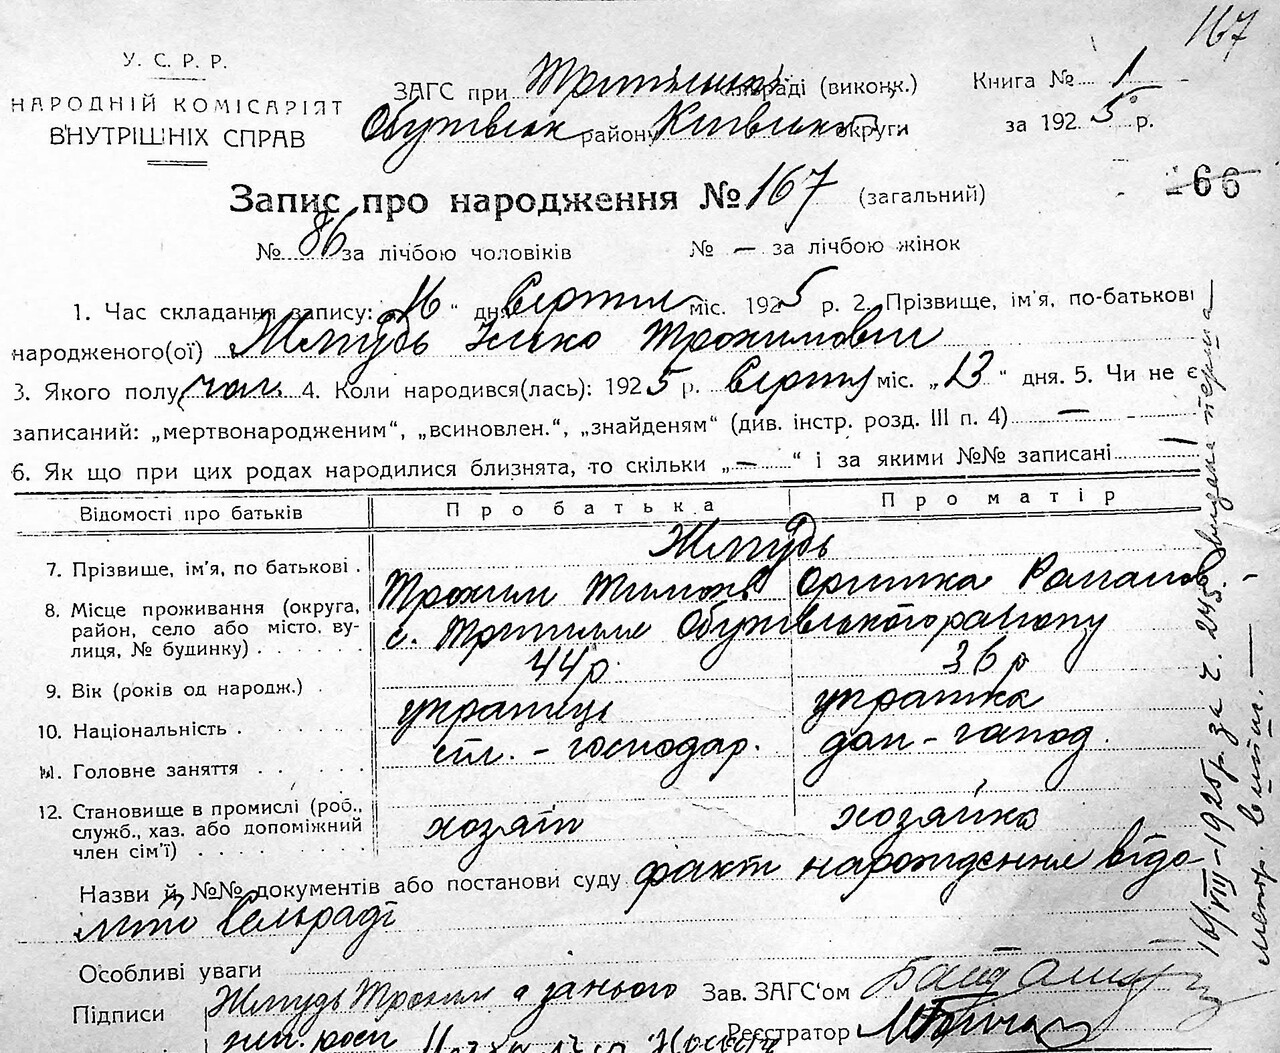 167
У. С. Р. Р.
НАРОДНІЙ КОМІСАРІЯТ
ВНУТРІШНІХ СПРАВ
ЗАГС при сільраді (виконк.)
району Київської округи
Книга № 1
за 1925 р.
66
Запис про народження № 167 (загальний)
№ 86 за лічбою чоловіків № — за лічбою жінок
1. Час складання запису: „16“ дня Серпня міс. 1925 р. 2. Прізвище, ім'я, по-батькові
народженого(ої) Жмудь Ілько Трохимович
3. Якого полу чол. 4. Коли народився(лась): 1925 р. Серпня міс. „13“ дня. 5. Чи не є
записаний: „мертвонародженим“, „всиновлен.“, „знайденям“ (див. інстр. розд. III п. 4) —
6. Як що при цих родах народилися близнята, то скільки „—“ і за якими №№ записані —
Відомості про батьків Про батька Про матір
Жмудь
7. Прізвище, ім'я, по батькові . Трохим Тимоф Оришка Роман
8. Місце проживання (округа, район, село або місто, вулиця, № будинку) с. Трипілля Обухівського району
9. Вік (років од народж.) . 44 р. 36 р
10. Національність . українець українка
11. Головне заняття сіл. - господар. дом - господ.
12. Становище в промислі (роб., служб., хаз. або допоміжний член сім'ї) хозяїн хозяйка
Назви й №№ документів або постанови суду факт народження відо
мий Сельраді
Особливі уваги
Підписи Жмудь Трохим а за нього Зав. ЗАГС'ом
Реєстратор
16/VIII-1925р. за ч. 245 видана перша
метр. випис. —